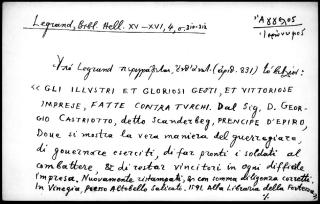 Legrand, Bibl. Hell. XV–XVI, 4, σ. 310-312
Ἄγγελος
Ἱερώνυμος
Ὑπὸ Legrand περιγράφεται, ἐνθ' ἀνωτ. (ἀριθ. 831) τὸ βιβλίον:
« GLI ILLVSTRI ET GLORIOSI GESTI, ET VITTORIOSE
IMPRESE, FATTE CONTRA TVRCHI. Dal Sig. D. GEOR-
GIO CASTRIOTTO, detto Scanderbeg, PRENCIPE D'EPIRO,
Doue si mostra la vera maniera del guerregiare,
di gouernare eserciti, di far pronti i soldati al
combattere, & di restar vincitori in ogni difficile
impresa, Nuovamente ristampati, & con somma diligenza corretti.
In Venegia, presso Altobello Salicato, 1591. Alla Libraria della Fortezza